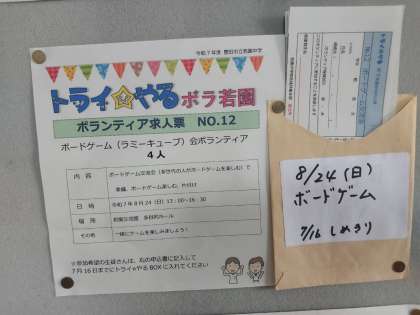 令和7年度 豊田市立若園中学
トライ☆やる ボラ若園
ボランティア求人票 NO.12
ボードゲーム(ラミーキューブ)会ボランティア
4人
内容
ボードゲーム交流会(多世代の人がボードゲームを楽しむ)で
準備、ボードゲーム楽しむ、片付け
日時
令和7年8月24(日)13:00~16:30
場所
若園交流館 多目的ホール
その他
一緒にゲームを楽しみましょう!
※参加希望の生徒さんは、右の申込書に記入して
7月16日までにトライ☆やるBOXに入れてください
8/24(日)
ボードゲーム
7/16 しめきり